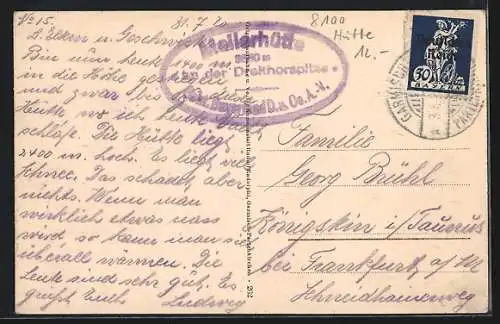 No 15. 31.7.2
L. Eltern u. Geschwister
Bin nun heute 1400 m
in die Höhe gestiegen
und zwar
Hütte wo ich heute Nacht
schlafe. Die Hütte liegt
2400 m. hoch. Es liegt viel
Schnee. Das schadet aber
nichts. Wenn man
wirklich etwas nass
wird so kann man sich
überall wärmen. Die
Leute sind sehr gut. Es
grüßt Euch Ludwig
Meilerhütte
an der Dreithorspitze
D. u. Oe. A.-V.
8100
Hütte
12.-
50
BAYERN
GARMISCH
Familie
Georg Brühl
Königstein i/Taunus
bei Frankfurt a/M
Schneidhainerweg
252